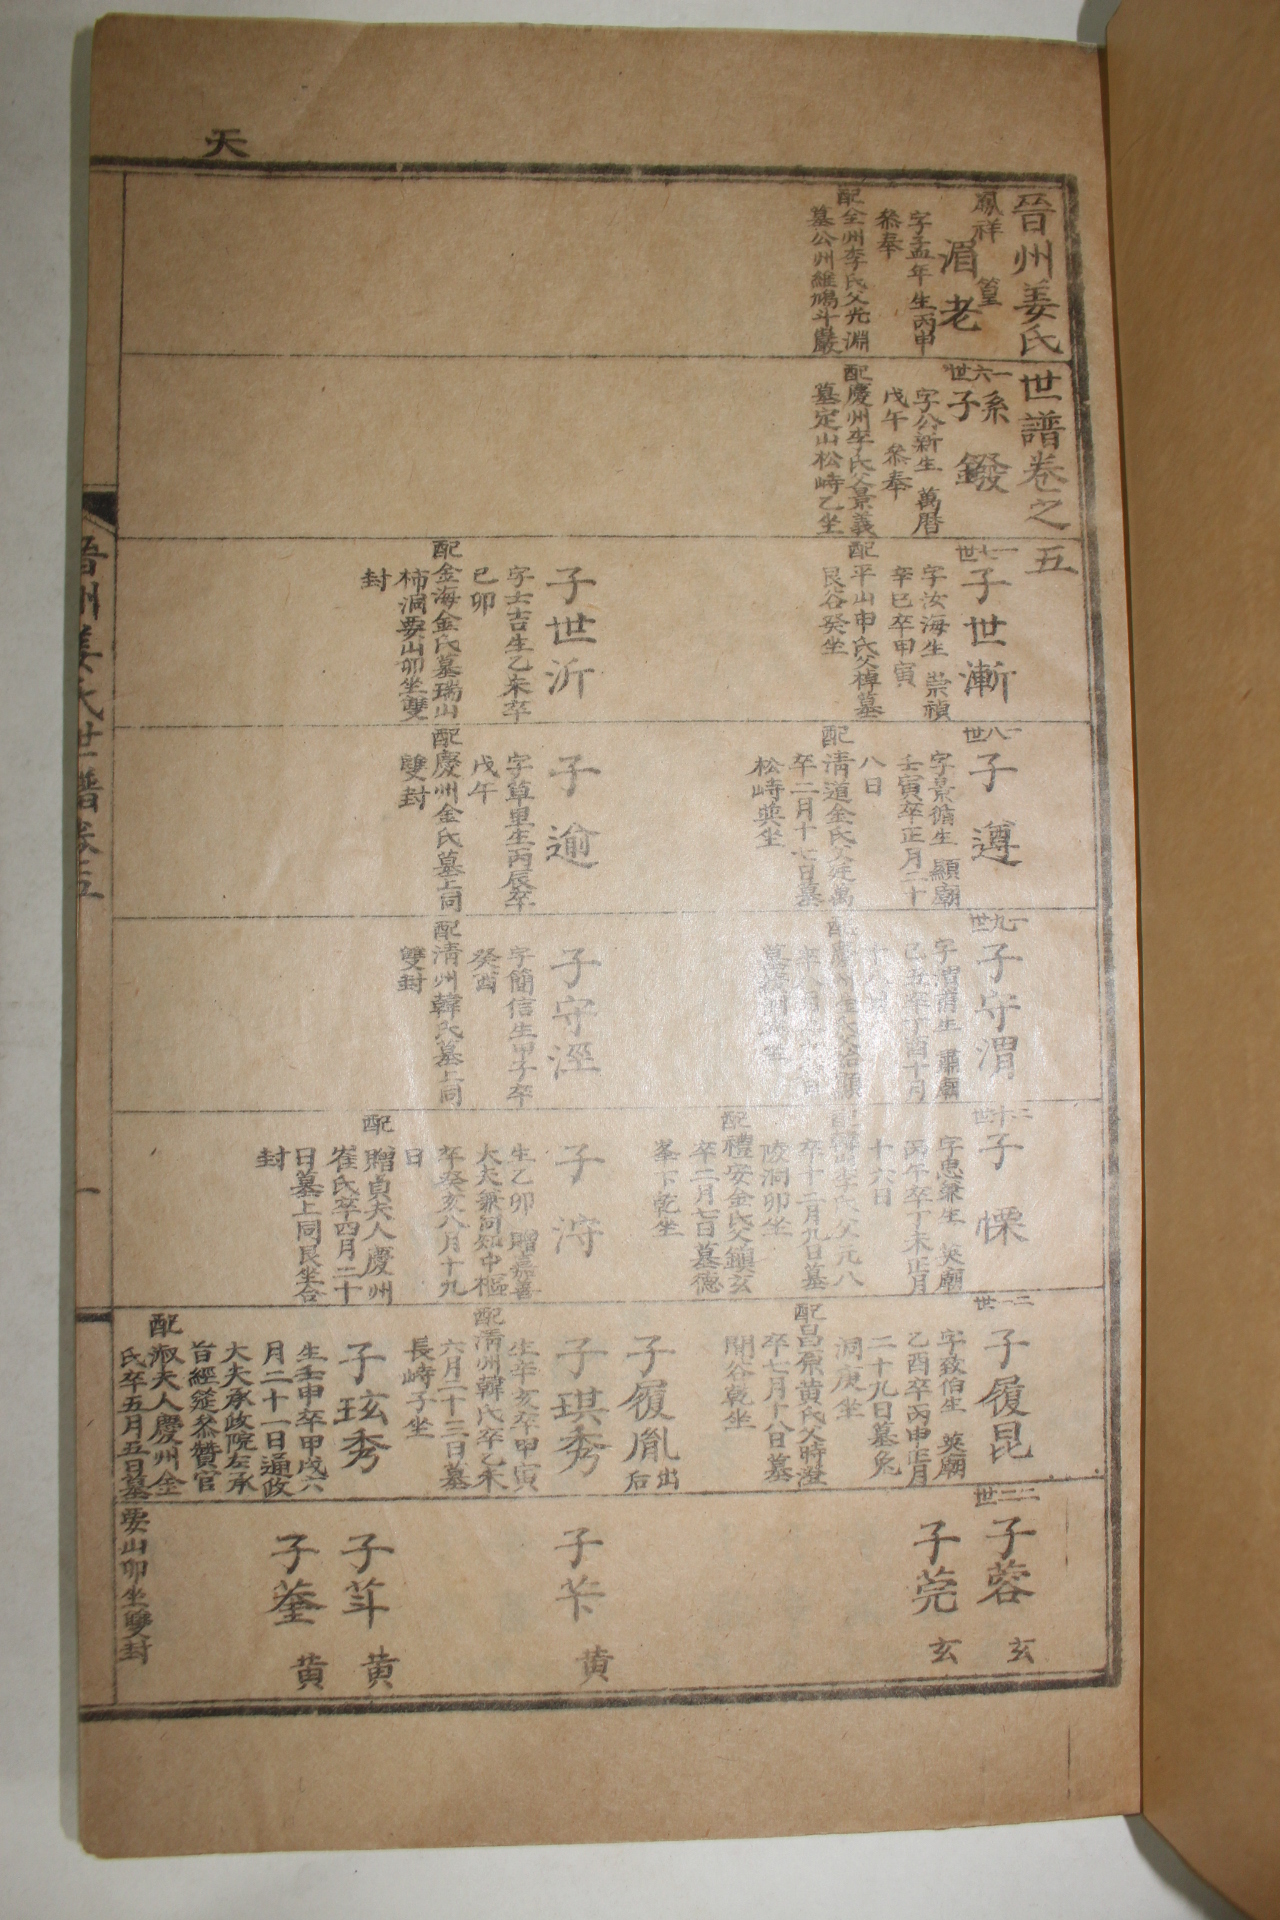 天
晉州姜氏世譜卷之五
鳳祥
篁
湄老
字孟年生丙申
叅奉
配全州李氏父光淵
墓公州維鳩斗巖
一六世
系
子鏺
字公新生 萬曆
戊午 叅奉
配慶州李氏父景義
墓定山松峙乙坐
一七世
子世漸
字汝海生 崇禎
辛巳卒甲寅
配平山申氏父棹墓
艮谷癸坐
子世沂
字士吉生乙未卒
己卯
配金海金氏墓瑞山
柿洞要山卯坐雙
封
一八世
子遵
字景循生 顯廟
壬寅卒正月二十
八日
配淸道金氏父廷萬
卒二月十七日墓
松峙巽坐
子逾
字草里生丙辰卒
戊午
配慶州金氏墓上同
雙封
一九世
子守渭
己丑卒丁酉十月
子守涇
字簡信生甲子卒
癸酉
配淸州韓氏墓上同
雙封
二十世
子慄
字忠兼生 英廟
丙午卒丁未正月
十六日
李氏父元八
卒十二月九日墓
陵洞卯坐
配禮安金氏父鎭玄
卒二月七日墓德
峯下乾坐
子涍
生乙卯 贈嘉善
大夫兼同知中樞
卒癸亥八月十九
日
配贈貞夫人慶州
崔氏卒四月二十
日墓上同艮坐合
封
二一世
子履昆
字致伯生 英廟
乙酉卒丙申正月
二十九日墓兔
洞庚坐
配昌原黃氏父時澄
卒七月十八日墓
開谷乾坐
子履胤
出后
子琪秀
生辛亥卒甲寅
配淸州韓氏卒乙未
六月二十三日墓
長峙子坐
子玹秀
生壬申卒甲戌六
月二十一日通政
大夫承政院左承
旨經筵叅贊官
配淑夫人慶州金
氏卒五月五日墓
要山卯坐雙封
二二世
子蓉
玄
子莞
玄
子苄
黃
子茟
黃
子荃
黃
晉州姜氏世譜卷五
一